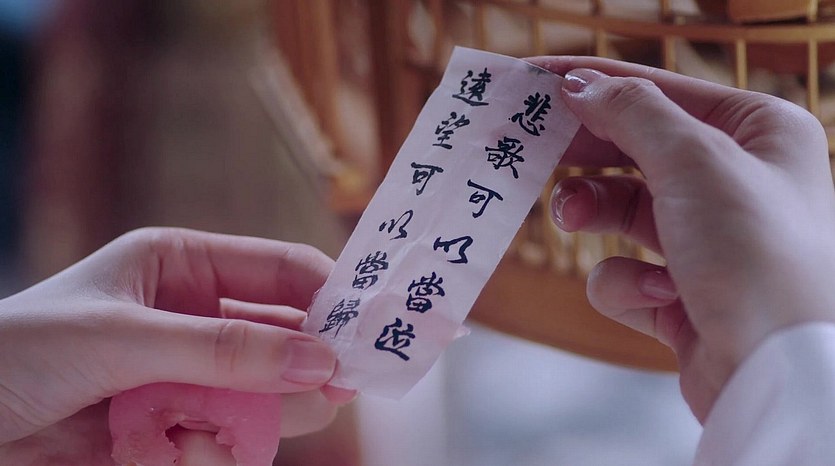 悲歌可以當泣
遠望可以當歸